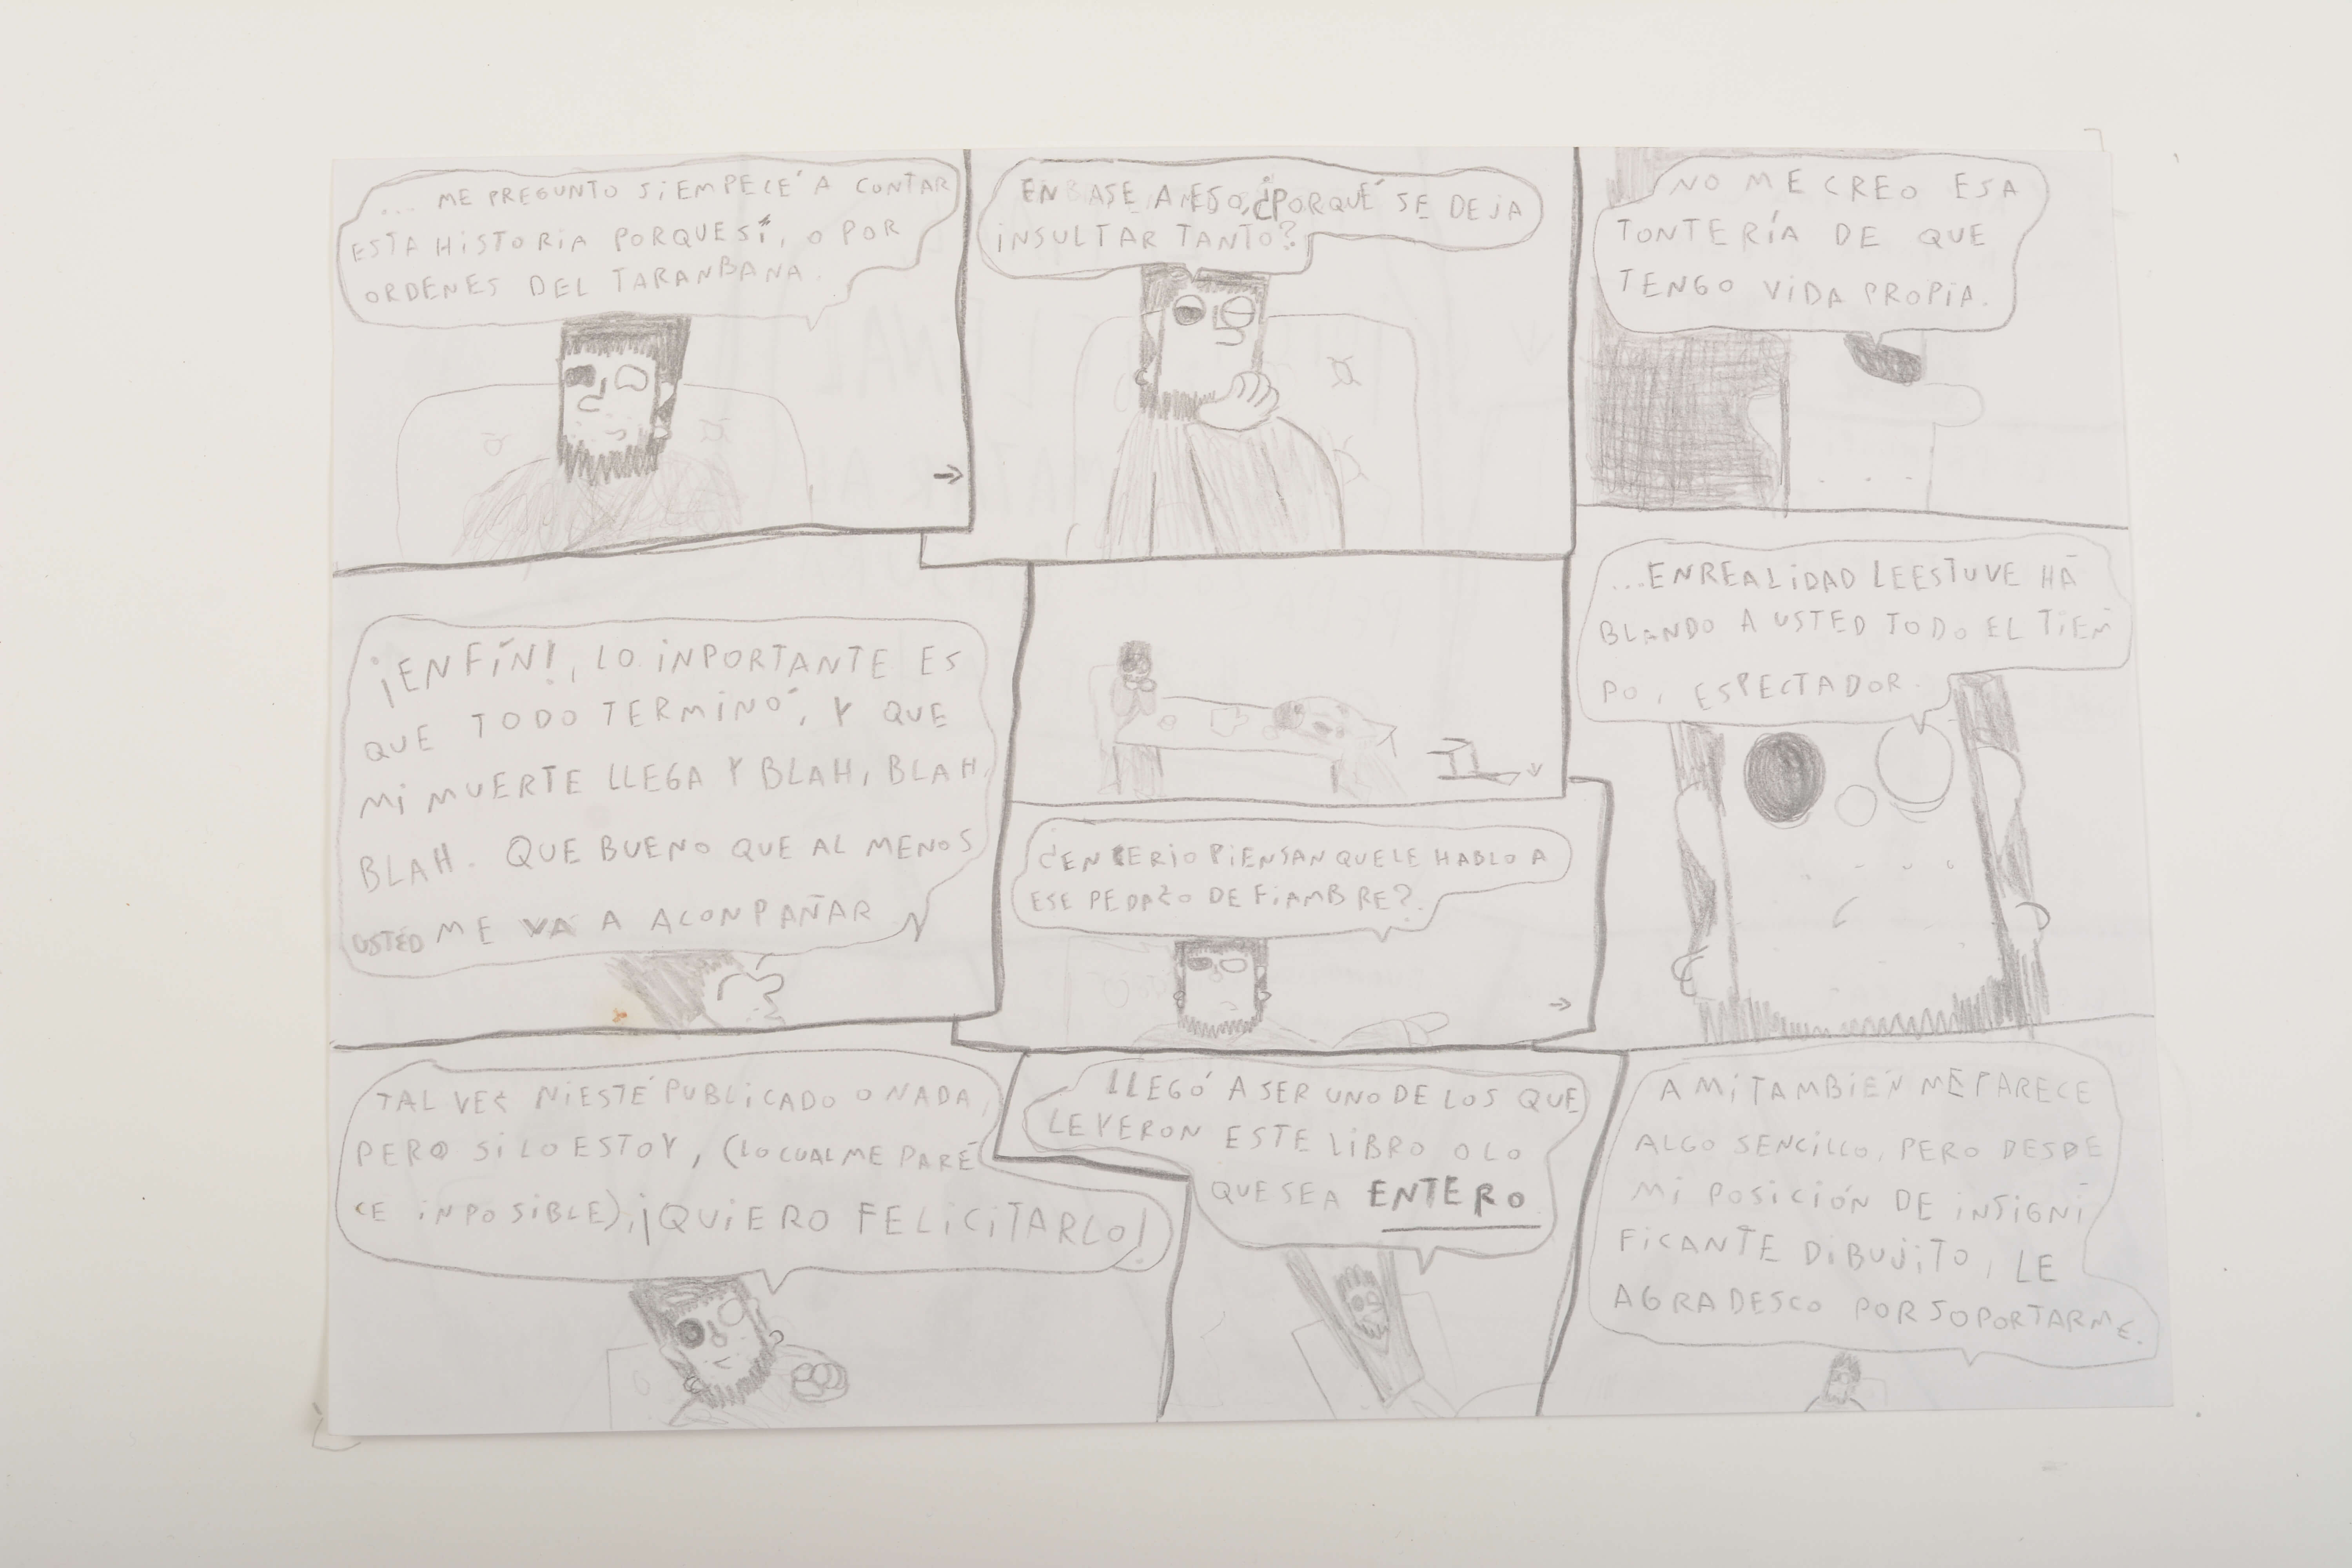 ... ME PREGUNTO Si EMPECÉ A CONTAR
ESTA HISTORIA PORQUE SÍ, O POR
ORDENES DEL TARANBANA.
EN BASE A ESO, ¿PORQUÉ SE DEJA
INSULTAR TANTO?
NO ME CREO ESA
TONTERÍA DE QUE
TENGO VIDA PROPIA.
¡ENFÍN!, LO INPORTANTE ES
QUE TODO TERMINÓ, Y QUE
MI MUERTE LLEGA Y BLAH, BLAH,
BLAH. QUE BUENO QUE AL MENOS
USTED ME VA A ACONPAÑAR
¿EN CERIO PIENSAN QUE LE HABLO A
ESE PEDAZO DE FIAMBRE?
...ENREALIDAD LE ESTUVE HA
BLANDO A USTED TODO EL TIEM
PO, ESPECTADOR.
TAL VEZ NI ESTÉ PUBLICADO O NADA,
PERO SI LO ESTOY, (LO CUAL ME PARE
CE INPOSIBLE), ¡QUIERO FELICITARLO!
LLEGÓ A SER UNO DE LOS QUE
LEYERON ESTE LIBRO O LO
QUE SEA ENTERO
A MI TAMBIÉN ME PARECE
ALGO SENCILLO, PERO DESDE
MI POSICIÓN DE INSIGNI
FICANTE DIBUJITO, LE
AGRADESCO POR SOPORTARME.